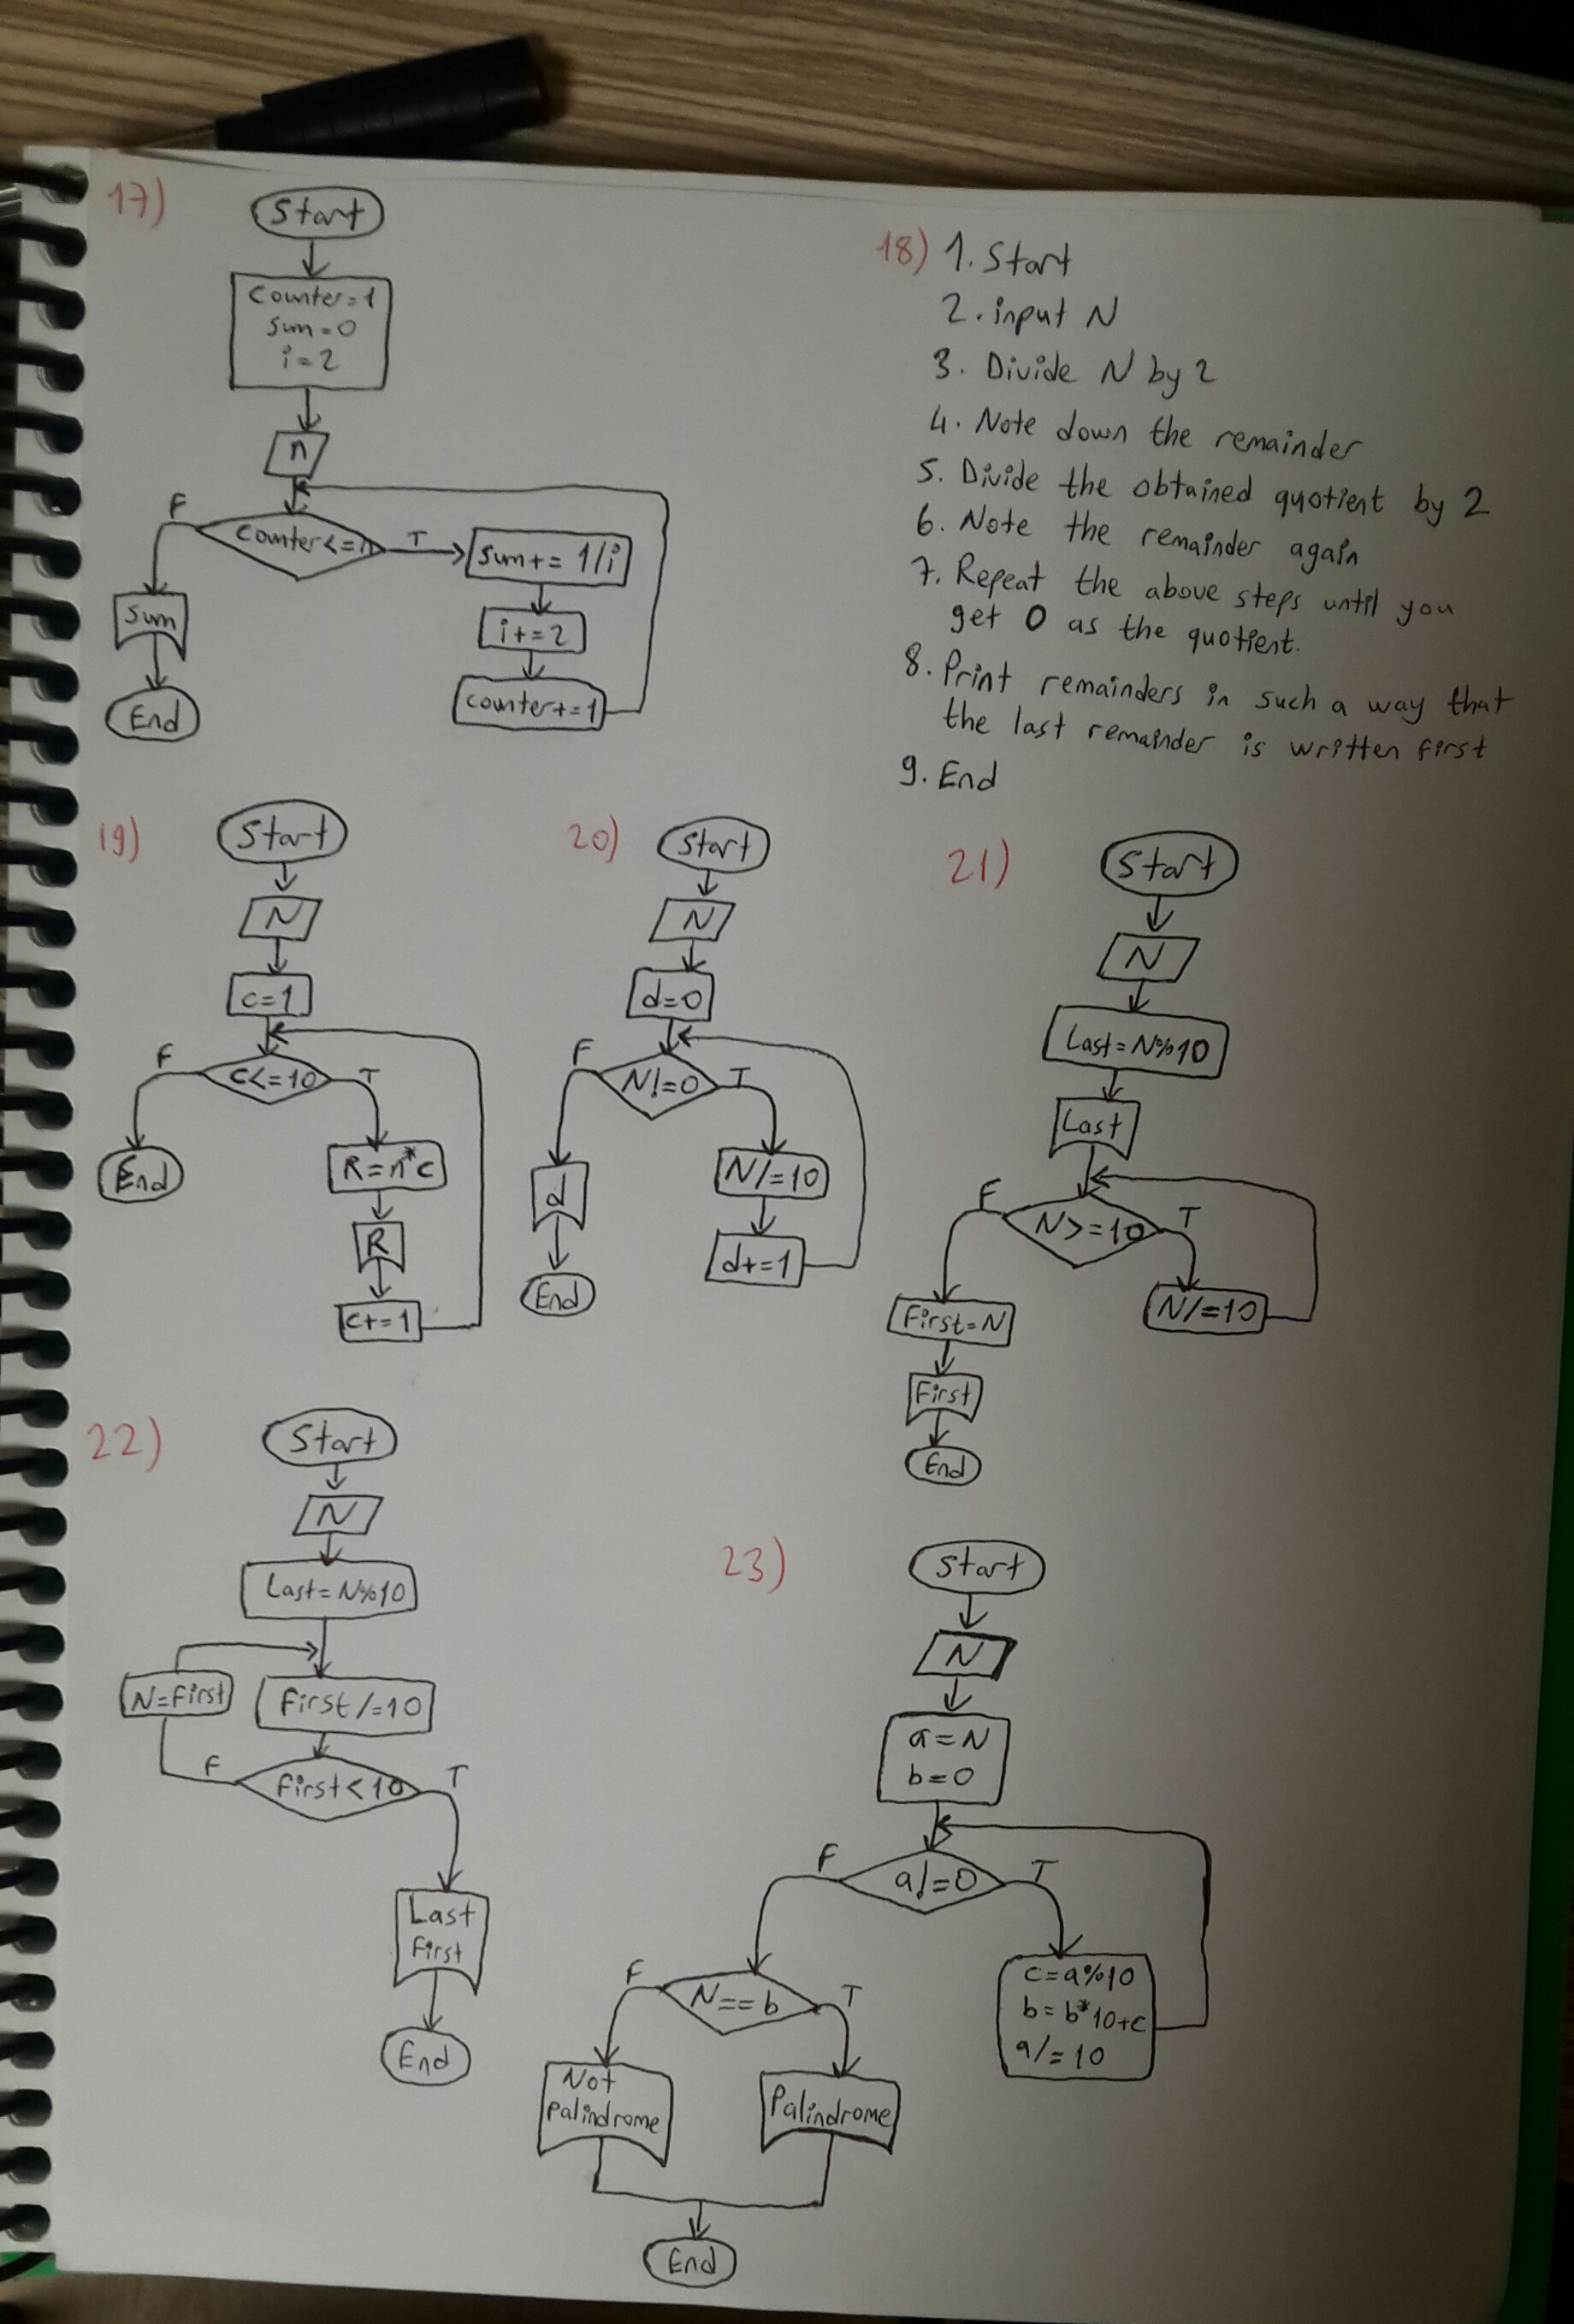 17)
Start
Counter=1
sum=0
i=2
n
Counter<=n
F
T
sum+= 1/i
i+=2
counter+=1
sum
End
18) 1. Start
2. input N
3. Divide N by 2
4. Note down the remainder
5. Divide the obtained quotient by 2
6. Note the remainder again
7. Repeat the above steps until you
get 0 as the quotient.
8. Print remainders in such a way that
the last remainder is written first
9. End
19)
Start
N
c=1
F
c<=10
T
End
R=n*c
R
c+=1
20)
Start
N
d=0
F
N!=0
T
d
End
N/=10
d+=1
21)
Start
N
Last=N%10
Last
F
N>=10
T
First=N
N/=10
First
End
22)
Start
N
Last=N%10
N=First
First/=10
F
First<10
T
Last
First
End
23)
Start
N
a=N
b=0
F
a!=0
T
c=a%10
b=b*10+c
a/=10
F
N==b
T
Not
palindrome
Palindrome
End